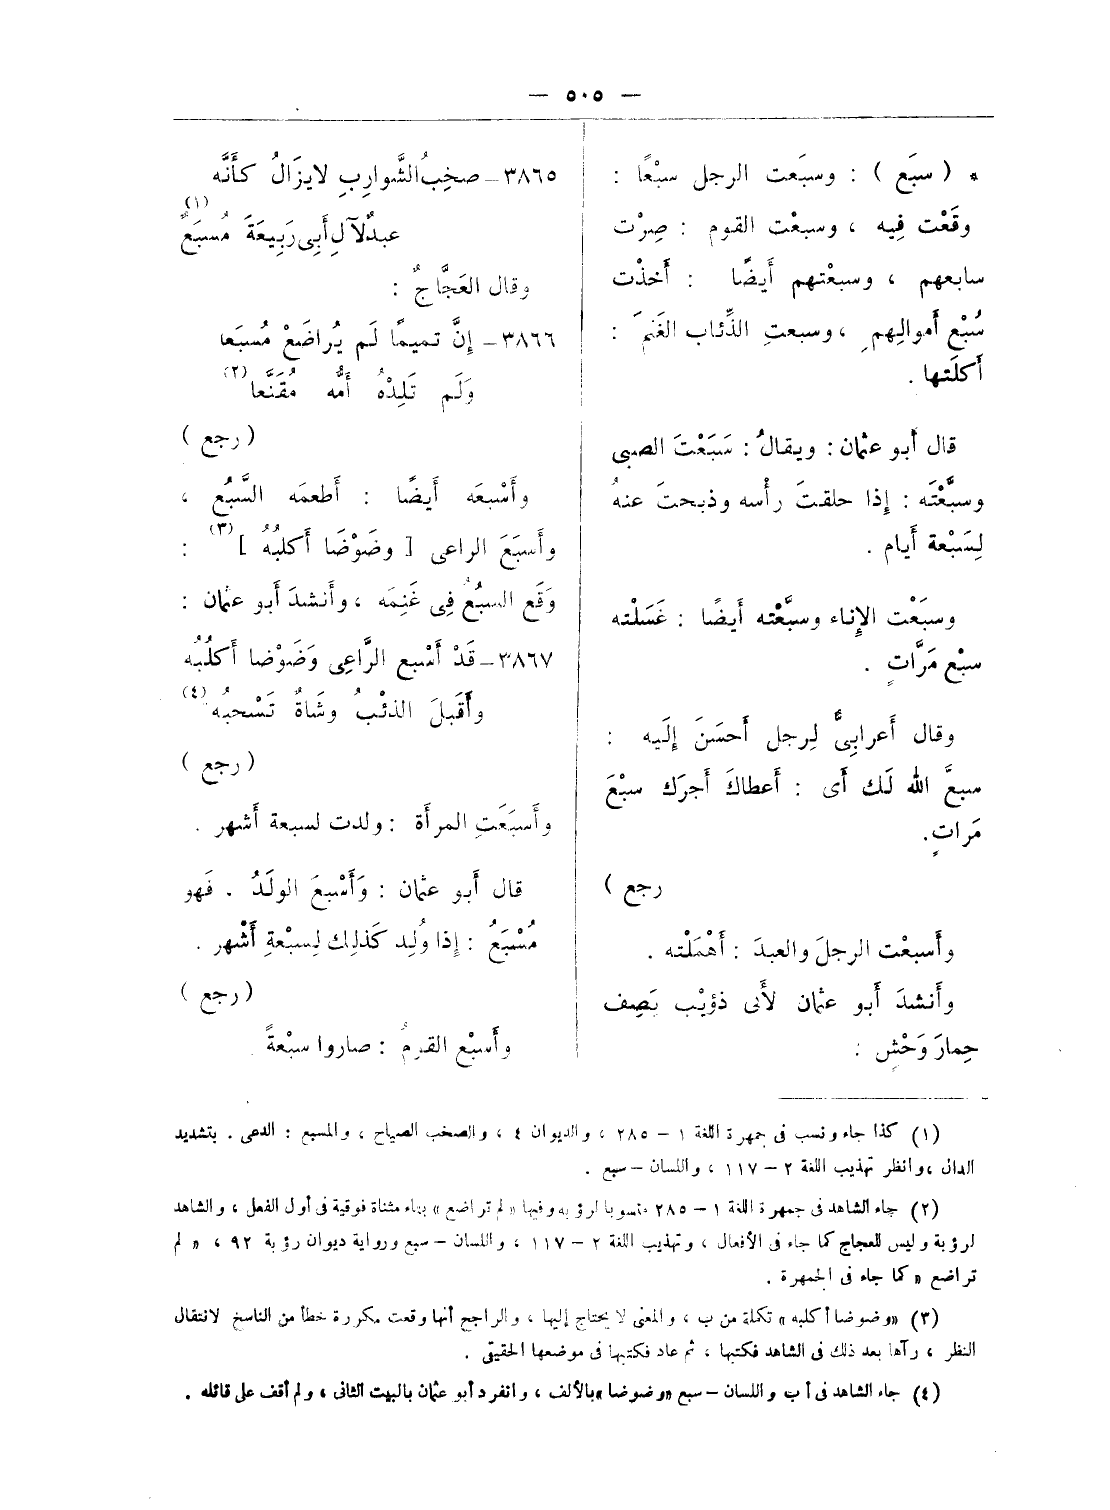 — ٥٠٥ —
* ( سبَع ) : وسبَعت الرجل سبْعًا :
وقَعْت فِيه ، وسبعْت القوم : صِرْت
سابعهم ، وسبعْتهم أَيضًا : أَخذْت
سُبْع أَموالِهم ، وسبعتِ الذِّئاب الغَنمَ :
أَكلَتها .
قال أَبو عثمان : ويقالُ : سَبَعْتَ الصبى
وسبَّعْتَه : إِذا حلقتَ رأْسه وذبحتَ عنهُ
لِسَبْعة أَيام .
وسبَعْت الإِناء وسبَّعْته أَيضًا : غَسَلْته
سبْع مَرَّاتٍ .
وقال أَعرابِىٌّ لِرجل أَحسَنَ إِلَيه :
سبعَّ الله لَك أَى : أَعطاكَ أَجرَك سبْعَ
مَراتٍ.
رجع )
وأَسبعْت الرجلَ والعبدَ : أَهْمَلْته .
وأَنشدَ أَبو عثمان لأَبى ذؤيْب يَصِف
حِمارَ وَحْشٍ :
٣٨٦٥ – صخِبُ الشَّوارِبِ لايزَالُ كأَنَّه
عبدٌ لآلِ أَبِى رَبِيعَةَ مُسبَعٌ (١)
وقال العَجَّاجُ :
٣٨٦٦ – إِنَّ تميمًا لَم يُراضَعْ مُسبَعا
وَلَم تَلِدْهُ أُمُّه مُقَنَّعا (٢)
( رجع )
وأَسْبعَه أَيضًا : أَطعمَه السَّبُع ،
وأَسبَعَ الراعى [ وضَوْضَا أَكلبُهُ ] (٣) :
وَقَع السبُعُ فِى غَنمِه ، وأَنشدَ أَبو عثمان :
٣٨٦٧ – قَدْ أَسْبع الرَّاعِى وَضَوْضا أَكلُبُه
وأَقبَلَ الذئْبُ وشَاةٌ تَسْحبُه (٤)
( رجع )
وأَسبَعَتِ المرأَة : ولدت لسبعة أَشهر .
قال أَبو عثمان : وَأَسْبعَ الولَدُ . فَهو
مُسْبَعُ : إِذا وُلِد كَذلِك لِسبْعةِ أَشْهر .
( رجع )
وأَسبْع القومُ : صاروا سبْعةً
(١) كذا جاء ونسب فى جمهرة اللغة ١ – ٢٨٥ ، والديوان ٤ ، والصخب الصياح ، والمسبع : الدعى . بتشديد
الدال ، وانظر تهذيب اللغة ٢ – ١١٧ ، واللسان – سبع .
(٢) جاء الشاهد فى جمهرة اللغة ١ – ٢٨٥ منسوبا لرؤبه وفيها « لم تراضع » بتاء مثناة فوقية فى أول الفعل ، والشاهد
لرؤبة وليس للعجاج كما جاء فى الأفعال ، وتهذيب اللغة ٢ – ١١٧ ، واللسان – سبع ورواية ديوان رؤبة ٩٢ ، « لم
تراضع » كما جاء فى الجمهرة .
(٣) «وضوضا أكلبه» تكملة من ب ، والمعنى لا يحتاج إليها ، والراجح أنها وقعت مكررة خطأ من الناسخ لانتقال
النظر ، رآها بعد ذلك فى الشاهد فكتبها ، ثم عاد فكتبها فى موضعها الحقيقى .
(٤) جاء الشاهد فى أ ب واللسان – سبع «وضوضا» بالألف ، وانفرد أبو عثمان بالبيت الثانى ، ولم أقف على قائله .